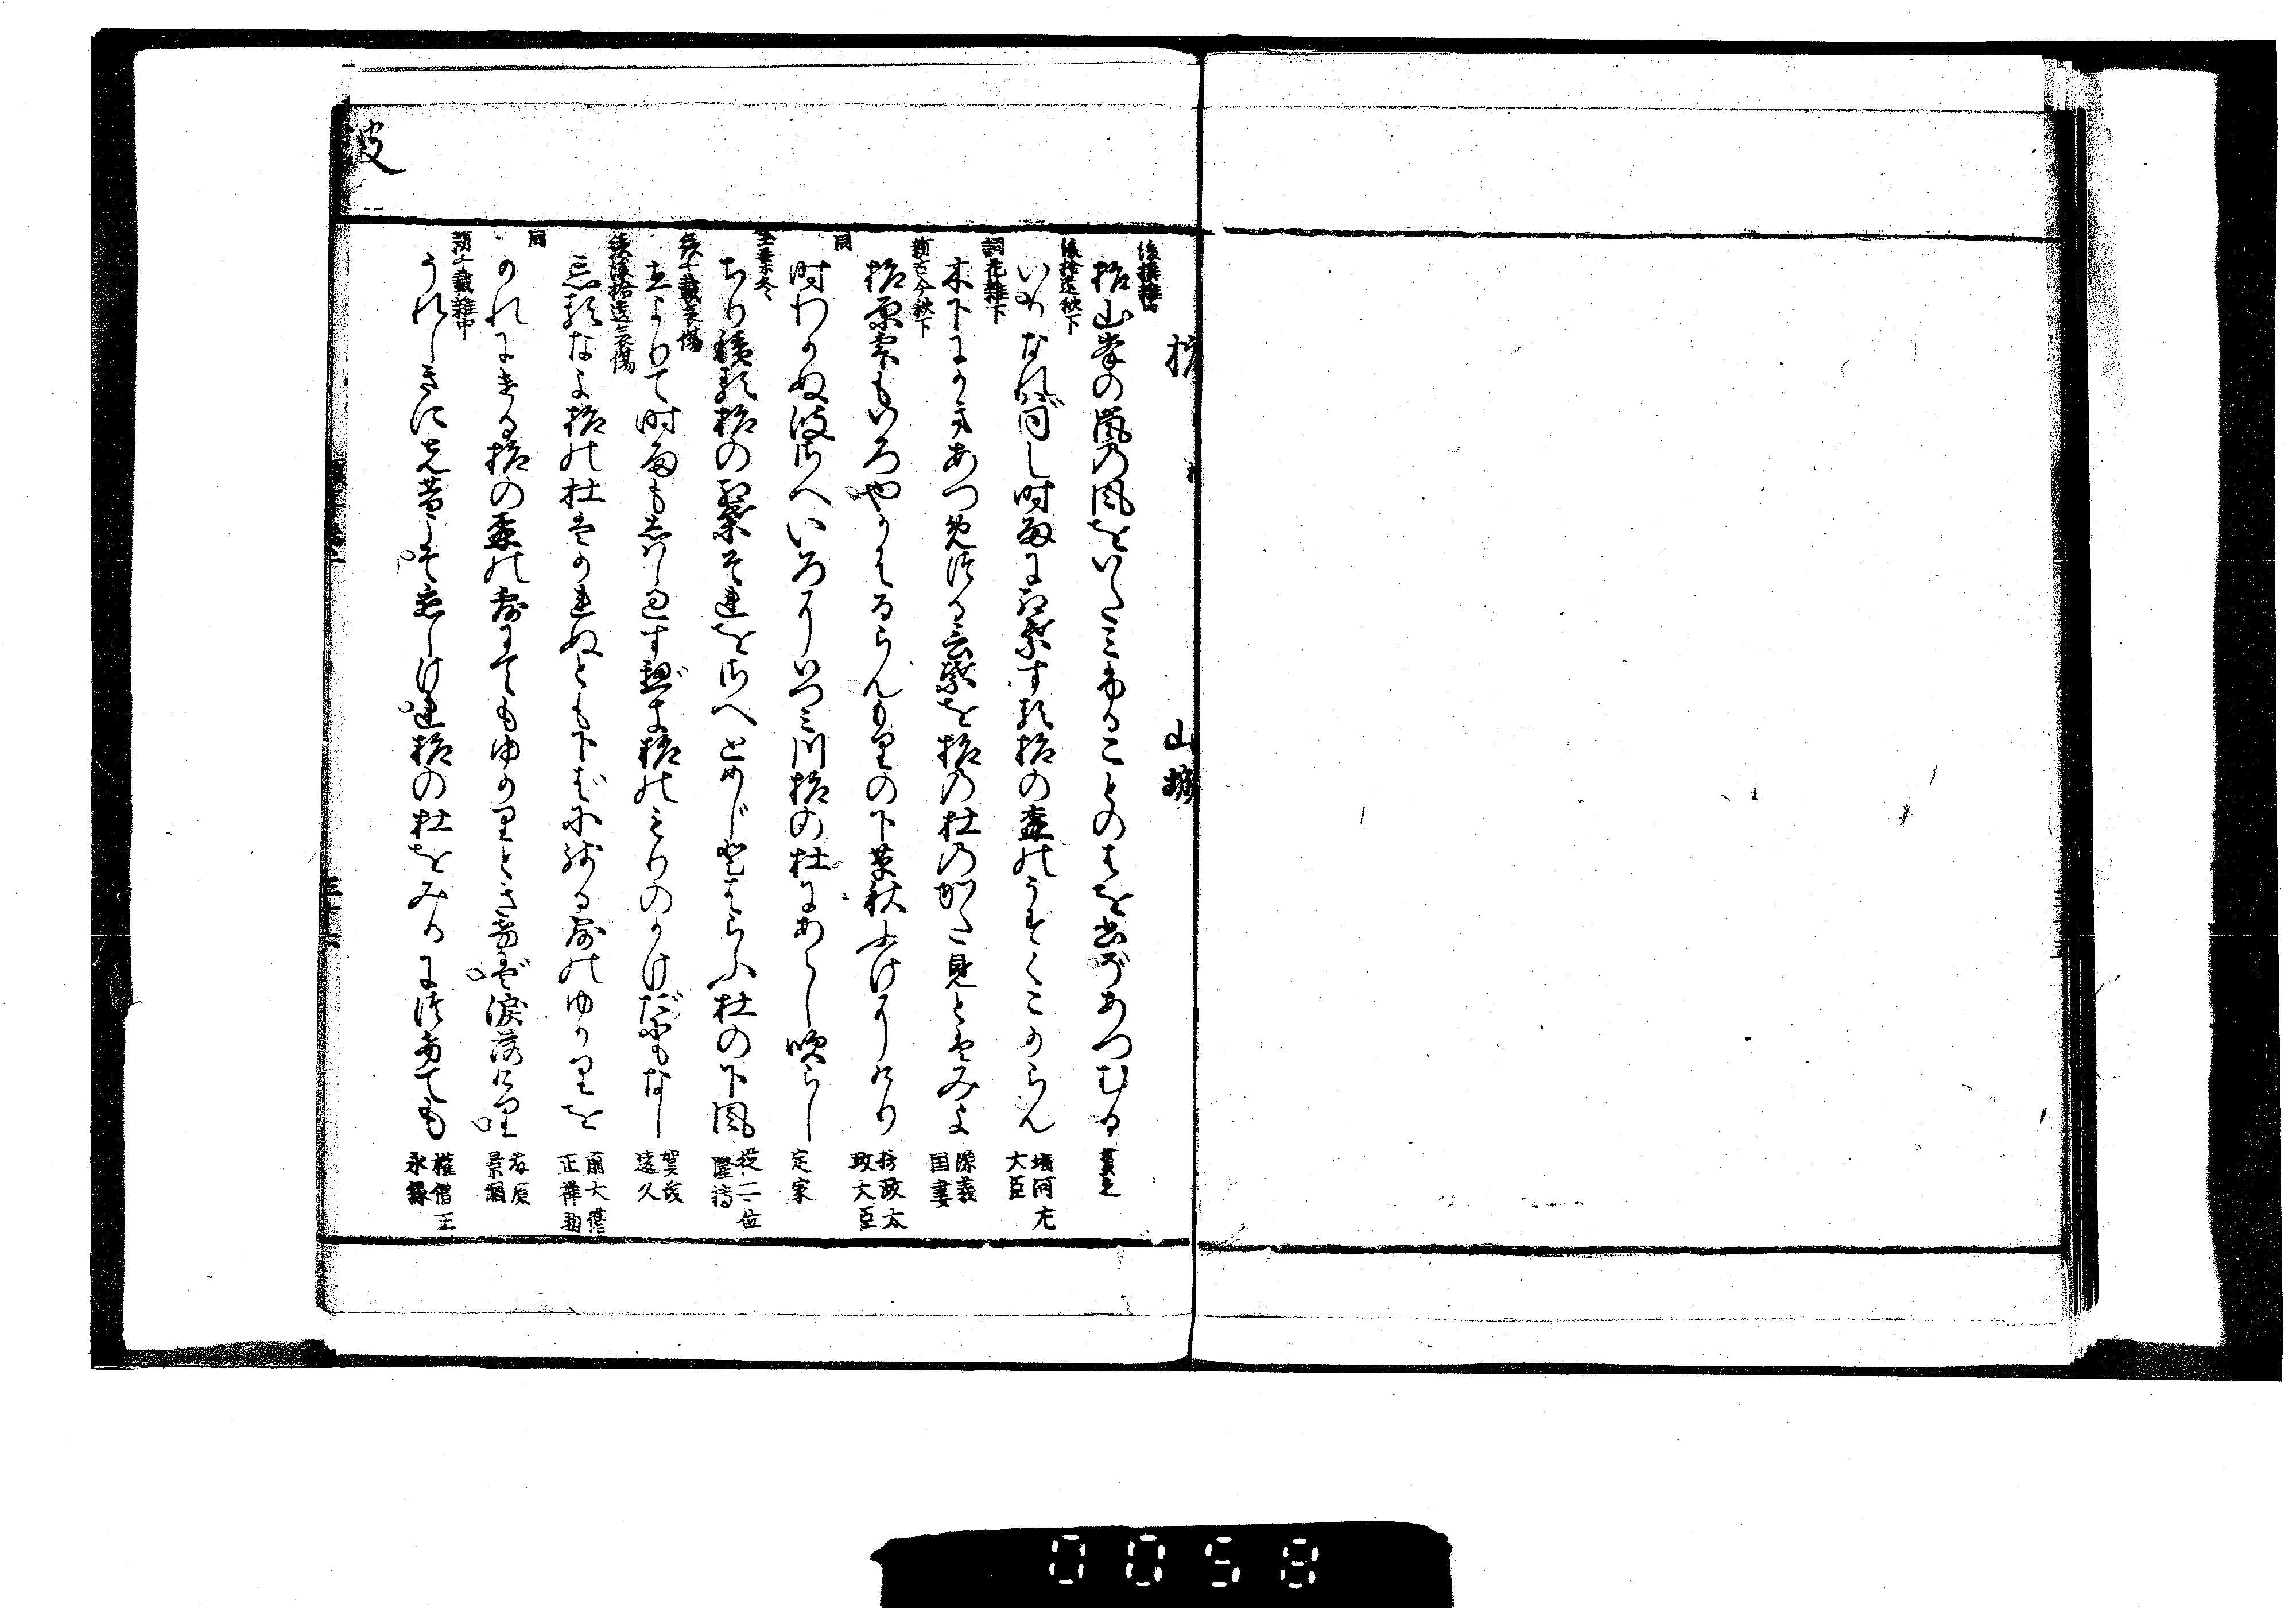 波
柞 山城
後撰雑四
柞山峯の嵐の風をいたみふることのはを書ぞあつむる 貫之
後拾遺秋下
いかなれば同し時雨に紅葉する柞の森のうすくこからん 堀河右大臣
詞花雑下
木下にかきあつめつる言葉を柞の杜のかたみとはみよ 源義国妻
新古今秋下
柞原雫もいろやかはるらんもりの下草秋ふけにけり 摂政太政大臣
同
時わかぬ波さへいろにいつみ川柞の杜にあらし吹らし 定家
玉葉冬
ちり積る柞の紅葉それをさへとめじとはらふ杜の下風 従二位隆博
続千載哀傷
立よりて時雨もしのかけだにもなし 賀茂遠久
続後拾遺哀傷
忘るなよ柞の杜はかれぬとも下ばに残る露のゆかりを 前大僧正禅助
同
かれにける柞の森の露にてもゆかりときけば涙落けり 藤原景綱
新千載雑中
うれしきに先昔こそ恋しけれ柞の杜をみるにつけても 権僧正永縁
0058